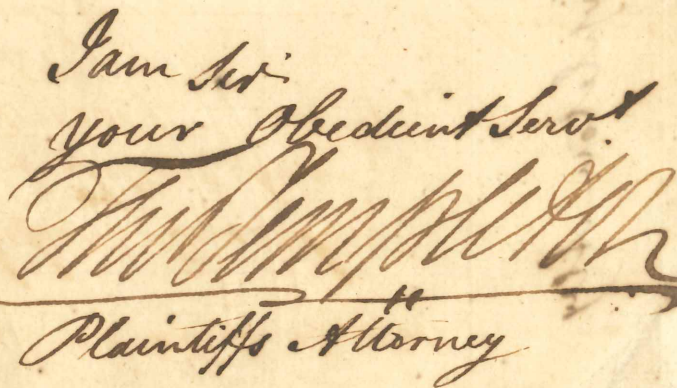 I am Sir
your Obedient Servt
Plaintiffs Attorney